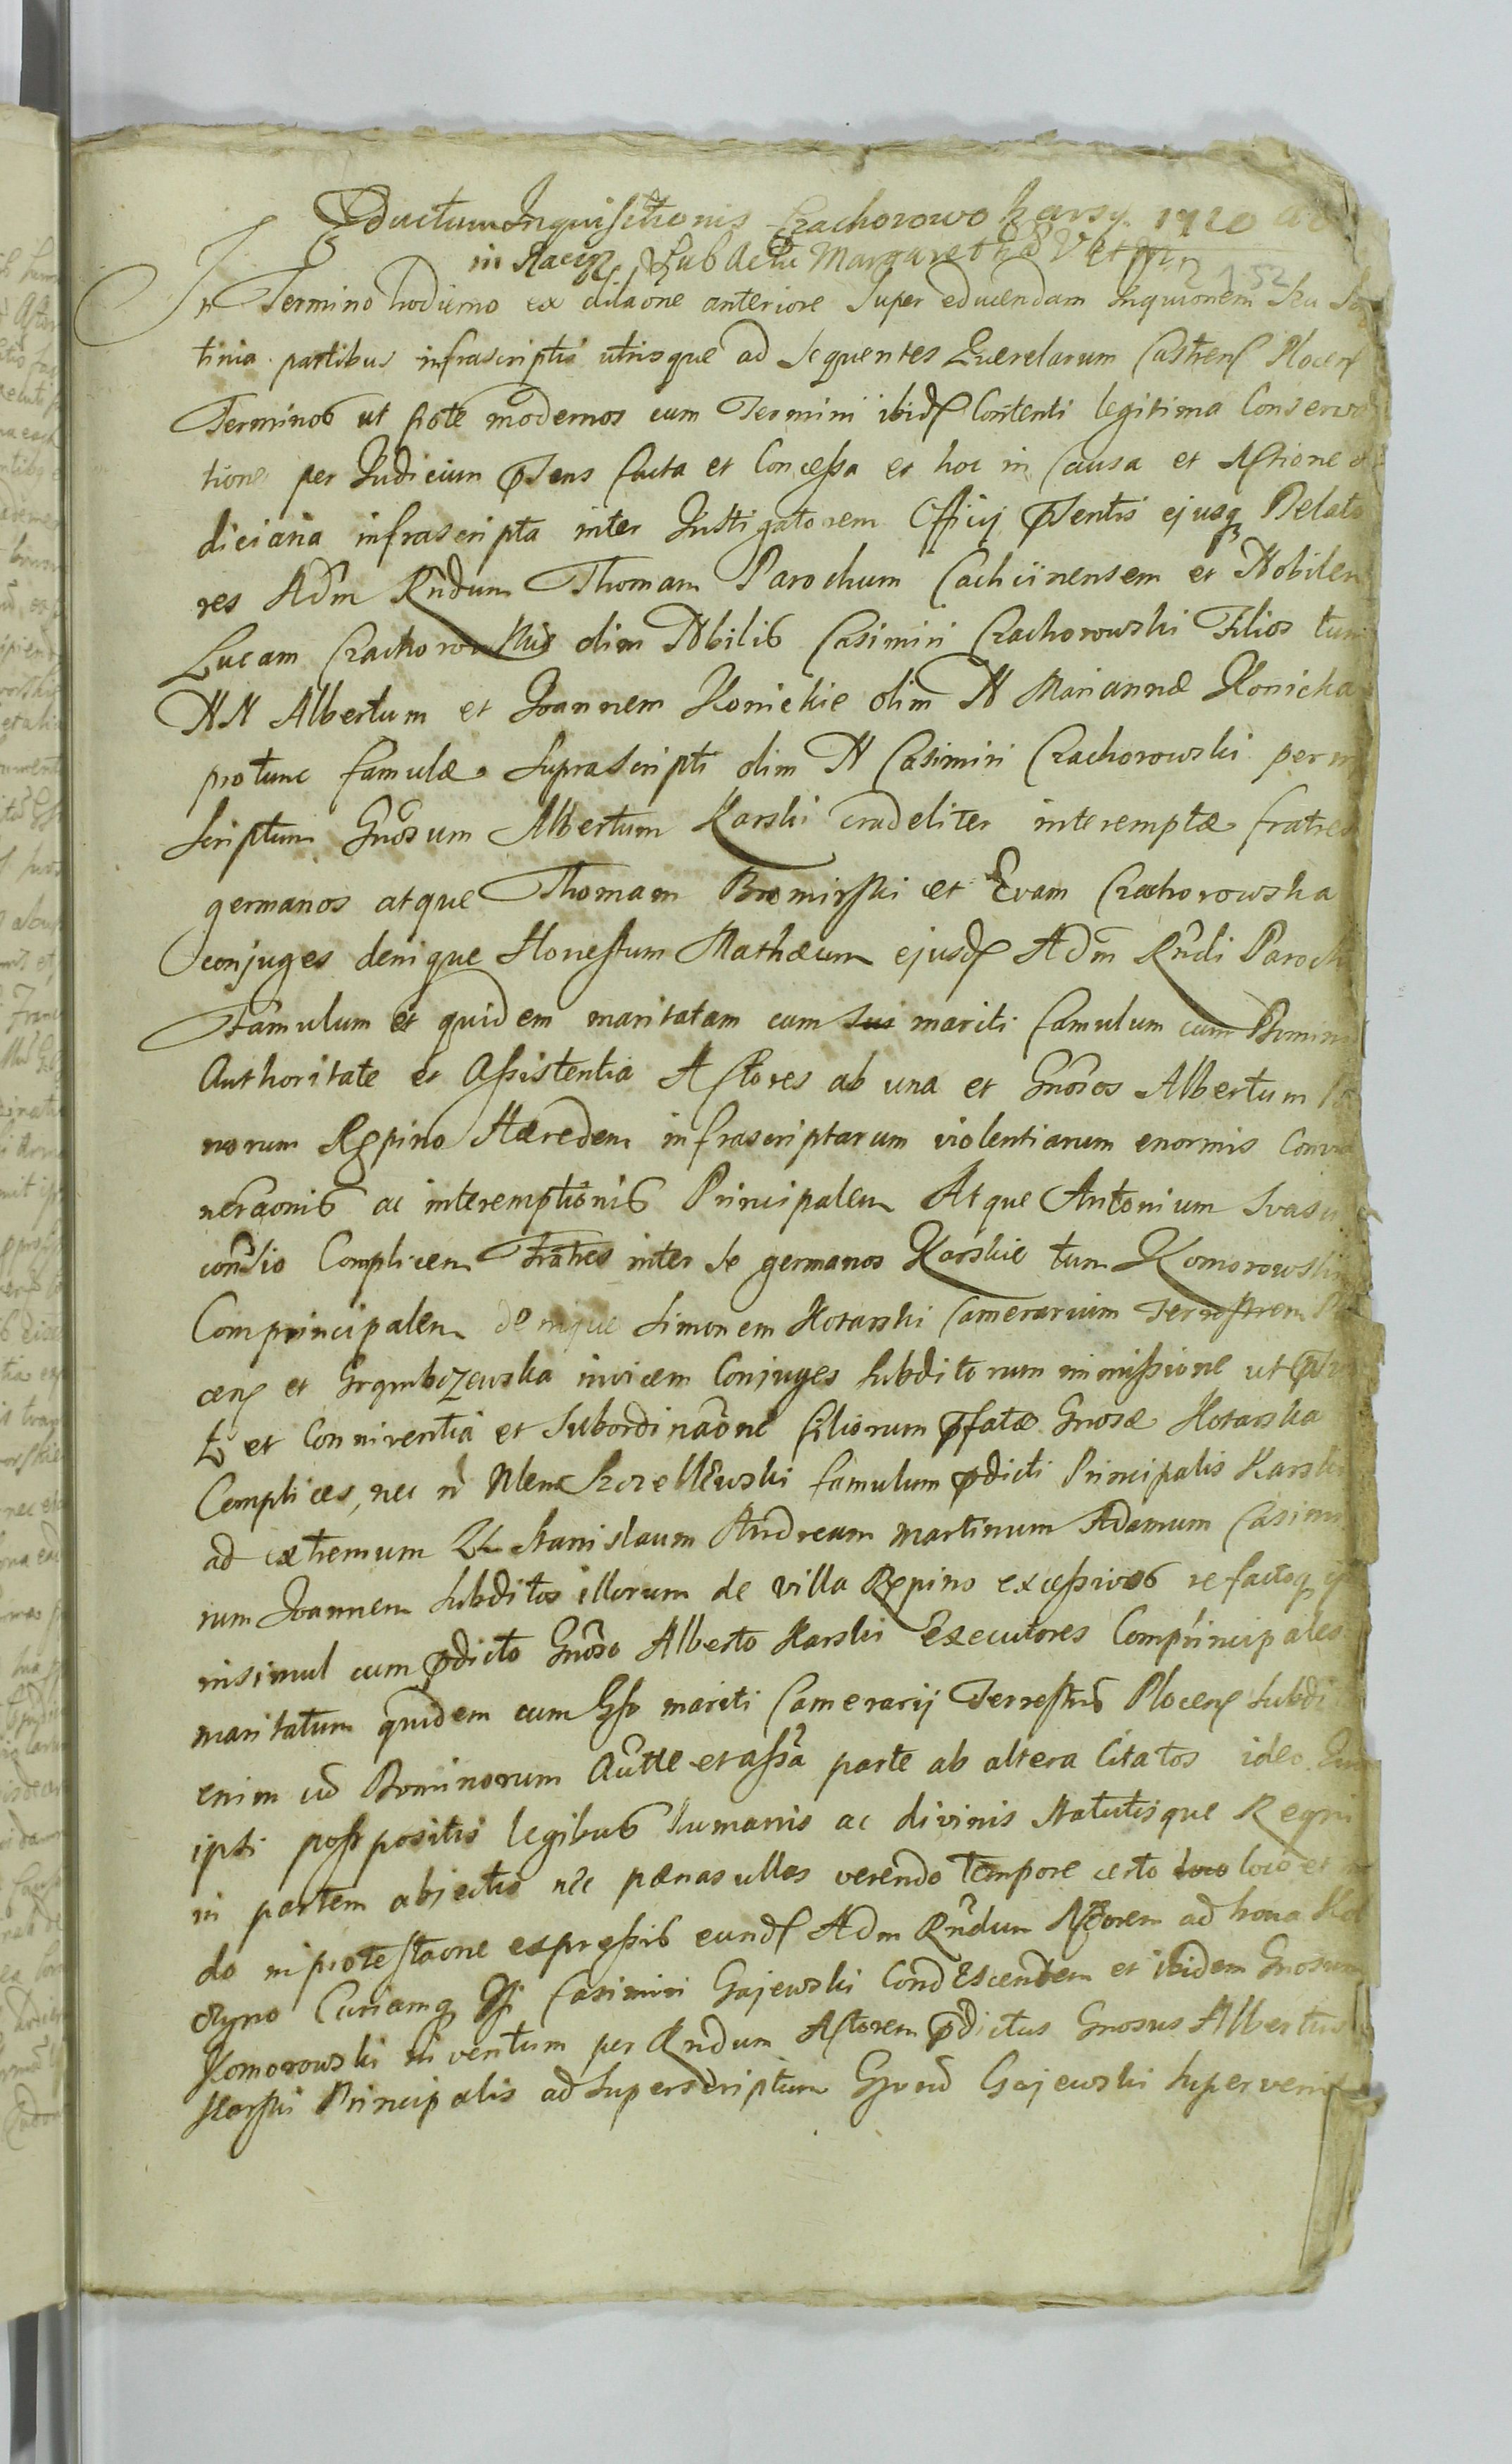 Eductum Inquisitionis Czachorowo Karsy 1720
in Raciąz Sub Actu Margarethæ
In Termino hodierno ex dilaone anteriore Super educendam Inquionem Seu
tinia partibus infrascriptis utrisque ad Sequentes Querelarum Castrens Plocens
Terminos ut pote modernos cum Termini ibid Contenti legitima Conserva
tione per Judicium pSens facta et Concessa et hoc in Causa et Actione
diciaria infrascripta inter Instigatorem Officij pSentis ejusq Delato
res Adm Rndum Thomam Parochum Cachciinensem et Nobilem
Lucam Czachorowskie olim Nobilis Casimiri Czachorowski Filios tum
NN Albertum et Joannem Konickie olim N Mariannæ Konicka
protunc famulæ Suprascripti olim N Casimiri Czachorowski per
Scriptum Gnosum Albertum Karski crudeliter interemptæ fratres
germanos atque Thomam Bromirski et Evam Czachorowska
conjuges denique Honestum Mathæum ejusd Adm Rndi Parochi
Famulum et quidem maritatam cum sui mariti famulum cum Domini
Authoritate et Assistentia Actores ab una et Gnosos Albertum
norum Rępino Hæredem infrascriptarum violentiarum enormis Convul
neraonis ac interemptionis Principalem Atque Antonium Svasu
consio Complicem Fratres inter se germanos Karskie tum Komorowski
Comprincipalem denique Simonem Kotarski Camerarium Terrestrem
cens et Grąmbczewska invicem Conjuges Subditorum immissione ut
et Conniventia et Subordinaone filiorum pfatæ Gnosæ Kotarska
Complices, nec n Nlem famulum pdicti Principalis Karski
ad extremum LL Stanislaum Andream Martinum Adamum Casimi
rum Joannem Subditos illorum de villa Rępino excessivos re factoq
insimul cum pdicto Gnoso Alberto Karski Executores Comprincipales
maritatum quidem cum Gso mariti Camerarij Terrestris Plocens Subdi
enim cum Dominorum Autte et assa parte ab altera Citatos ideo
ipsi post positis legibus humanis ac divinis Statutisque Regni
in partem abjectis nec pænas ullas verendo tempore certo loco loco et
do in protestaone expressis eund Adm Rndum Actorem ad bona
Curiamq Gsi Casimiri Gajewski Condescendem et ibidem Gnosum
Komorowski inventum per Rndum Actorem pdictus Gnosus Albertus
Karski Principalis ad Superscriptum Gajewski Supervenit